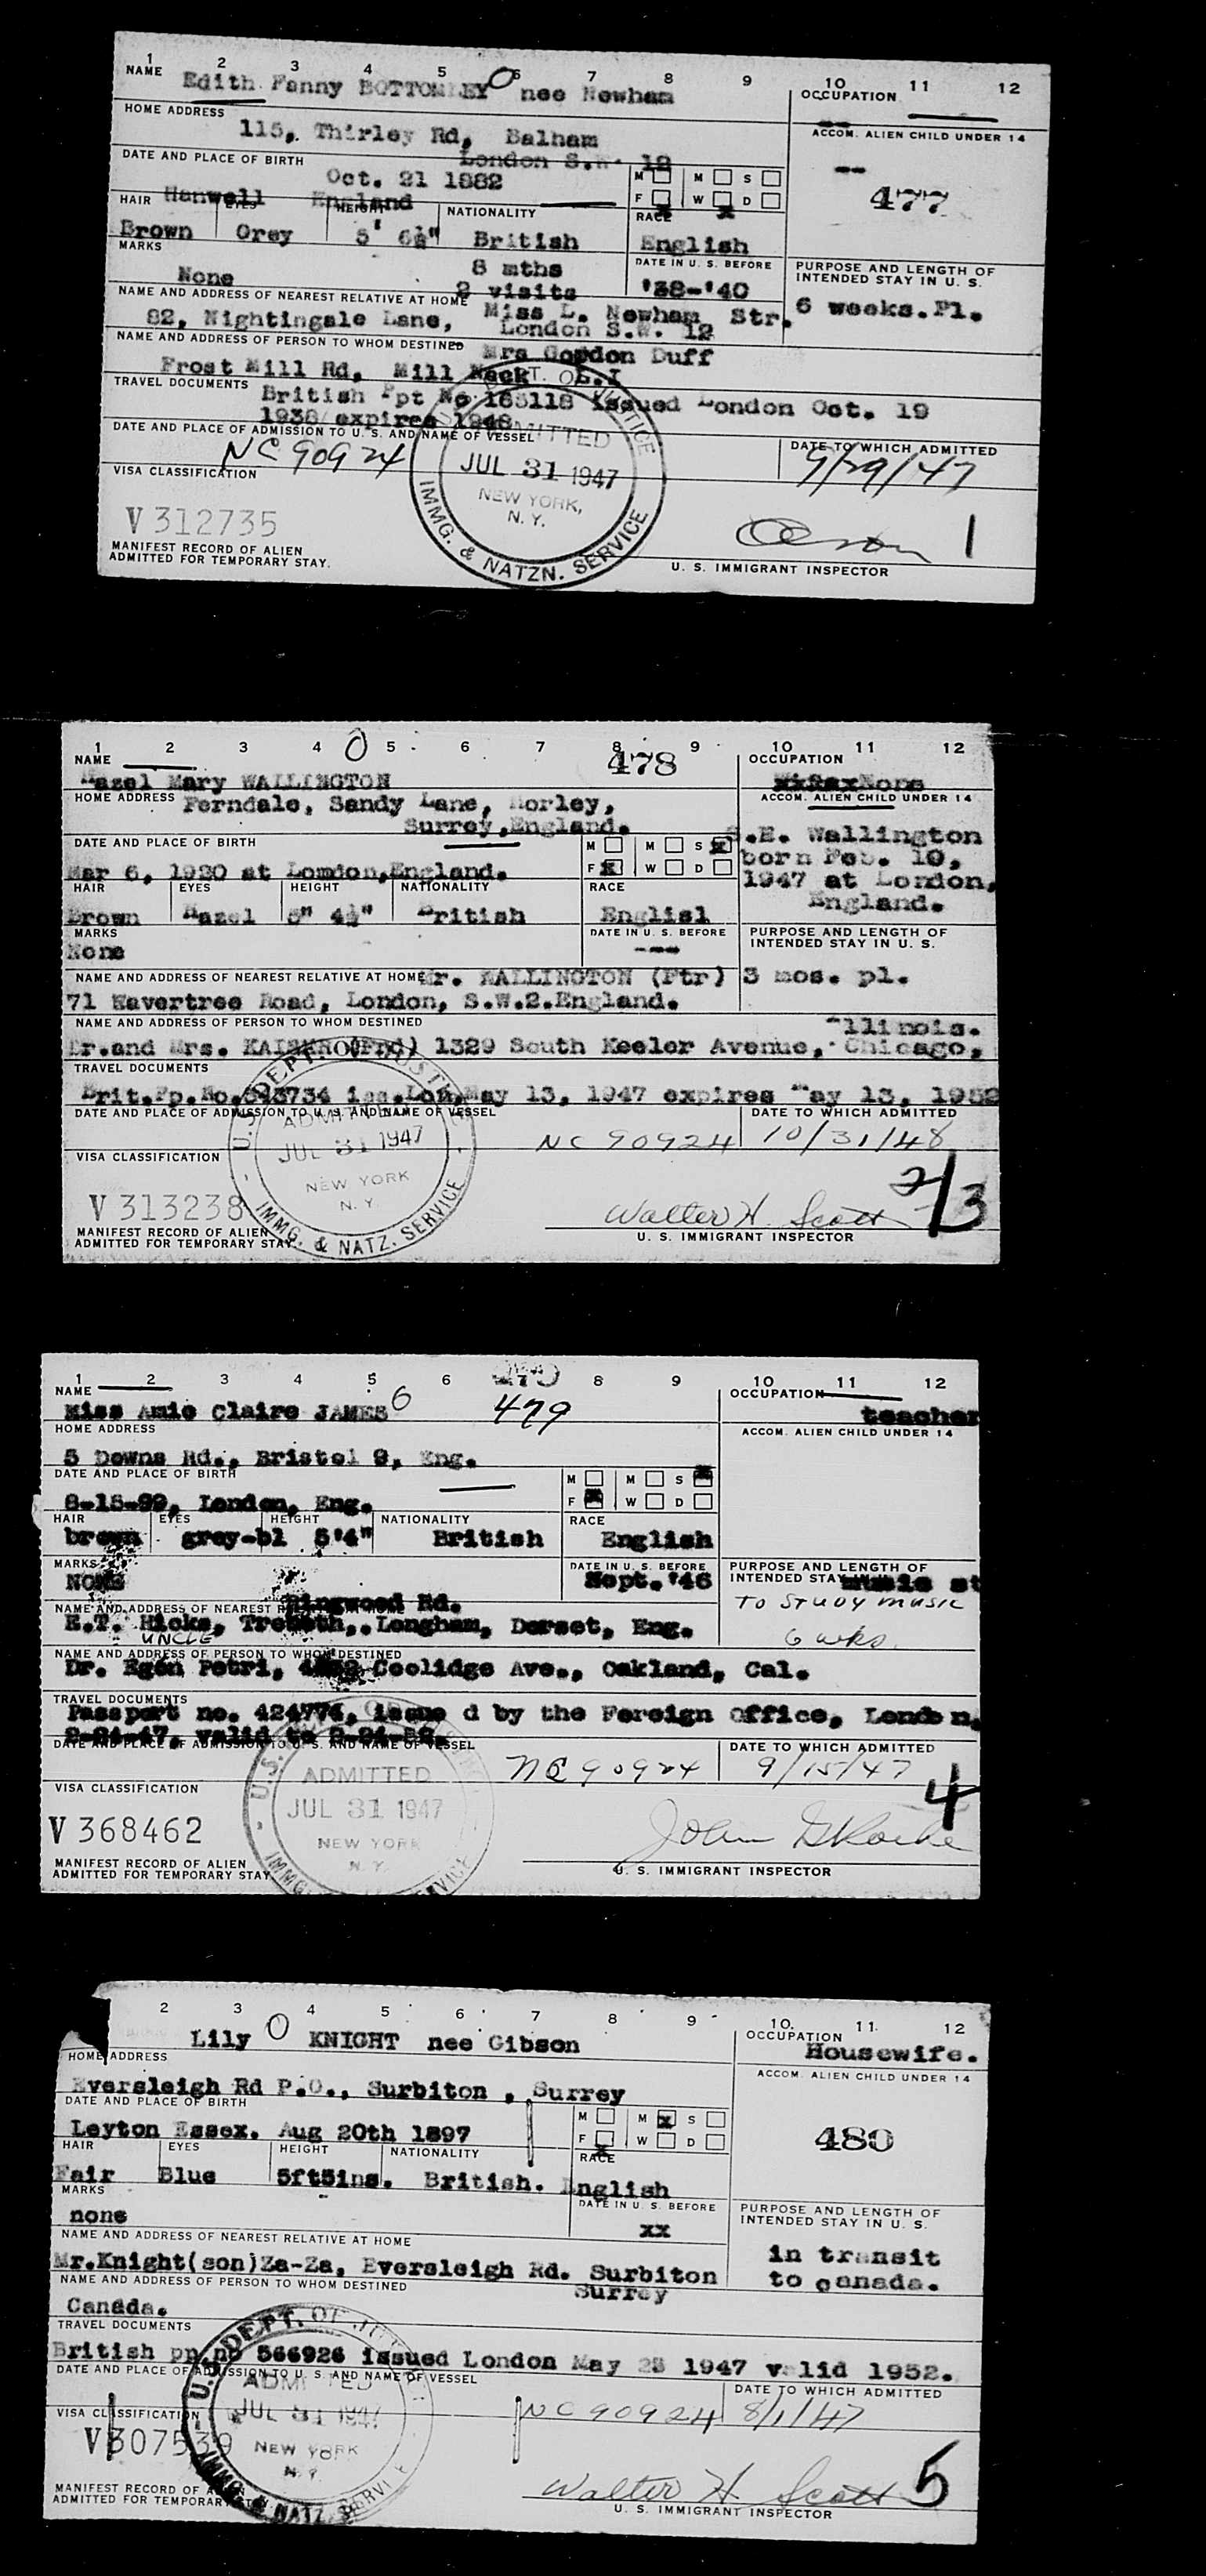 1 2 3 4 5 6 7 8 9 10 11 12
NAME Edith Fanny BOTTOMLEY nee Newham
OCCUPATION --
HOME ADDRESS
115, Thirley Rd, Balham
London S.W. 12
ACCOM. ALIEN CHILD UNDER 14
--
477
DATE AND PLACE OF BIRTH
Oct. 21 1882
Hanwell England
M M S
F W D
x x
HAIR EYES HEIGHT NATIONALITY RACE
Brown Grey 5' 6½" British English
MARKS
None
8 mths
2 visits
DATE IN U. S. BEFORE
'38-'40
PURPOSE AND LENGTH OF
INTENDED STAY IN U. S.
6 weeks. Pl.
NAME AND ADDRESS OF NEAREST RELATIVE AT HOME Miss L. Newham Str.
82, Nightingale Lane, London S.W. 12
NAME AND ADDRESS OF PERSON TO WHOM DESTINED Mrs Gordon Duff
Frost Mill Rd, Mill Neck L.I
TRAVEL DOCUMENTS
British Ppt No 165118 issued London Oct. 19
1938 expires 1948
DATE AND PLACE OF ADMISSION TO U. S. AND NAME OF VESSEL
NC 90924
DATE TO WHICH ADMITTED
9/29/47
VISA CLASSIFICATION
V 312735
ADMITTED
JUL 31 1947
NEW YORK,
N. Y.
IMMG. & NATZN. SERVICE
MANIFEST RECORD OF ALIEN
ADMITTED FOR TEMPORARY STAY.
U. S. IMMIGRANT INSPECTOR
1
1 2 3 4 5 6 7 8 9 10 11 12
478
NAME
Hazel Mary WALLINGTON
OCCUPATION
None
HOME ADDRESS Ferndale, Sandy Lane, Horley,
Surrey, England.
ACCOM. ALIEN CHILD UNDER 14
S.E. Wallington
born Feb. 10,
1947 at London,
England.
DATE AND PLACE OF BIRTH
Mar 6, 1920 at London, England.
M M S x
F x W D
HAIR EYES HEIGHT NATIONALITY RACE
Brown Hazel 5" 4½" British Englisl
MARKS
None
DATE IN U. S. BEFORE
---
PURPOSE AND LENGTH OF
INTENDED STAY IN U. S.
3 mos. pl.
NAME AND ADDRESS OF NEAREST RELATIVE AT HOME Mr. WALLINGTON (Ftr)
71 Wavertree Road, London, S.W.2.England.
NAME AND ADDRESS OF PERSON TO WHOM DESTINED Illinois.
Dr.and Mrs. (Frd) 1329 South Keeler Avenue, Chicago,
TRAVEL DOCUMENTS
Brit.Pp.No.543734 iss.Lon.May 13, 1947 expires May 13, 1952
DATE AND PLACE OF ADMISSION TO U. S. AND NAME OF VESSEL
NC 90924
DATE TO WHICH ADMITTED
10/31/48
VISA CLASSIFICATION
V 313238
U. S. DEPT. OF JUSTICE
ADMITTED
JUL 31 1947
NEW YORK
N. Y.
IMMG. & NATZ. SERVICE
2/3
MANIFEST RECORD OF ALIEN
ADMITTED FOR TEMPORARY STAY.
Walter H. Scott
U. S. IMMIGRANT INSPECTOR
1 2 3 4 5 6 8 9 10 11 12
479
NAME
Miss Amie Claire JAMES
OCCUPATION
teacher
HOME ADDRESS
5 Downs Rd., Bristol 9, Eng.
ACCOM. ALIEN CHILD UNDER 14
DATE AND PLACE OF BIRTH
8-15-99, London, Eng.
M M S x
F x W D
HAIR EYES HEIGHT NATIONALITY RACE
brown grey-bl 5'4" British English
MARKS
NONE
DATE IN U. S. BEFORE
Sept. '46
PURPOSE AND LENGTH OF
INTENDED STAY music st
TO STUDY MUSIC
6 wks.
NAME AND ADDRESS OF NEAREST Ringwood Rd.
E.T. Hicks, Longham, Dorset, Eng.
UNCLE
NAME AND ADDRESS OF PERSON TO WHOM DESTINED
Dr. Egon Petri, Coolidge Ave., Oakland, Cal.
TRAVEL DOCUMENTS
Passport no. 424774, issue d by the Foreign Office, London,
2-24-47, valid to 2-24-52.
DATE AND PLACE OF ADMISSION TO U. S. AND NAME OF VESSEL
NC 90924
DATE TO WHICH ADMITTED
9/15/47
VISA CLASSIFICATION
V 368462
U. S.
ADMITTED
JUL 31 1947
NEW YORK
N. Y.
IMMG. SERVICE
4
MANIFEST RECORD OF ALIEN
ADMITTED FOR TEMPORARY STAY
U. S. IMMIGRANT INSPECTOR
2 3 4 5 6 7 8 9 10 11 12
Lily KNIGHT nee Gibson
OCCUPATION
Housewife.
HOME ADDRESS
Eversleigh Rd P.O., Surbiton , Surrey
ACCOM. ALIEN CHILD UNDER 14
480
DATE AND PLACE OF BIRTH
Leyton Essex. Aug 20th 1897
M M x S
F x W D
HAIR EYES HEIGHT NATIONALITY RACE
Fair Blue 5ft5ins. British. English
MARKS
none
DATE IN U. S. BEFORE
xx
PURPOSE AND LENGTH OF
INTENDED STAY IN U. S.
in transit
to canada.
NAME AND ADDRESS OF NEAREST RELATIVE AT HOME
Mr.Knight(son)Za-Za, Eversleigh Rd. Surbiton
Surrey
NAME AND ADDRESS OF PERSON TO WHOM DESTINED
Canada.
TRAVEL DOCUMENTS
British pp.no 566926 issued London May 23 1947 valid 1952.
DATE AND PLACE OF ADMISSION TO U. S. AND NAME OF VESSEL
NC 90924
DATE TO WHICH ADMITTED
8/1/47
VISA CLASSIFICATION
V307539
U. S. DEPT. OF JUSTICE
ADMITTED
JUL 31 1947
NEW YORK
N. Y.
IMMG. & NATZ. SERVICE
MANIFEST RECORD OF ALIEN
ADMITTED FOR TEMPORARY STAY
Walter H. Scott
U. S. IMMIGRANT INSPECTOR
5